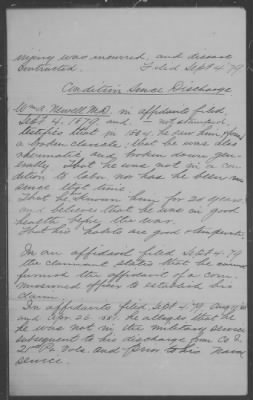 injury was incurred, and disease
contracted. Filed Sept 4. 79
Condition Since Discharge
Wm A. Newell M.D. in affidavit filed,
Sept 4. 1879, and
testifies that in 1864, he saw him
a broken clavicle, that he was also
rheumatic and broken down gen-
erally that he was not in a con-
dition to labor nor has he been
since that time.
That he known him for 20 years
and believes that he was in good
health before the war.
That his habits are good & temperate.
In an affidavit filed Sept 4. 79
the claimant states that he cannot
furnish the affidavit of a com-
missioned officer to establish his
claim.
In affidavits filed, Sept 4. 79.
and Apr 26. he alleges that he
he was not in the military service
subsequent to his discharge from Co
21st Pa Vols. and prior to his Naval
service.